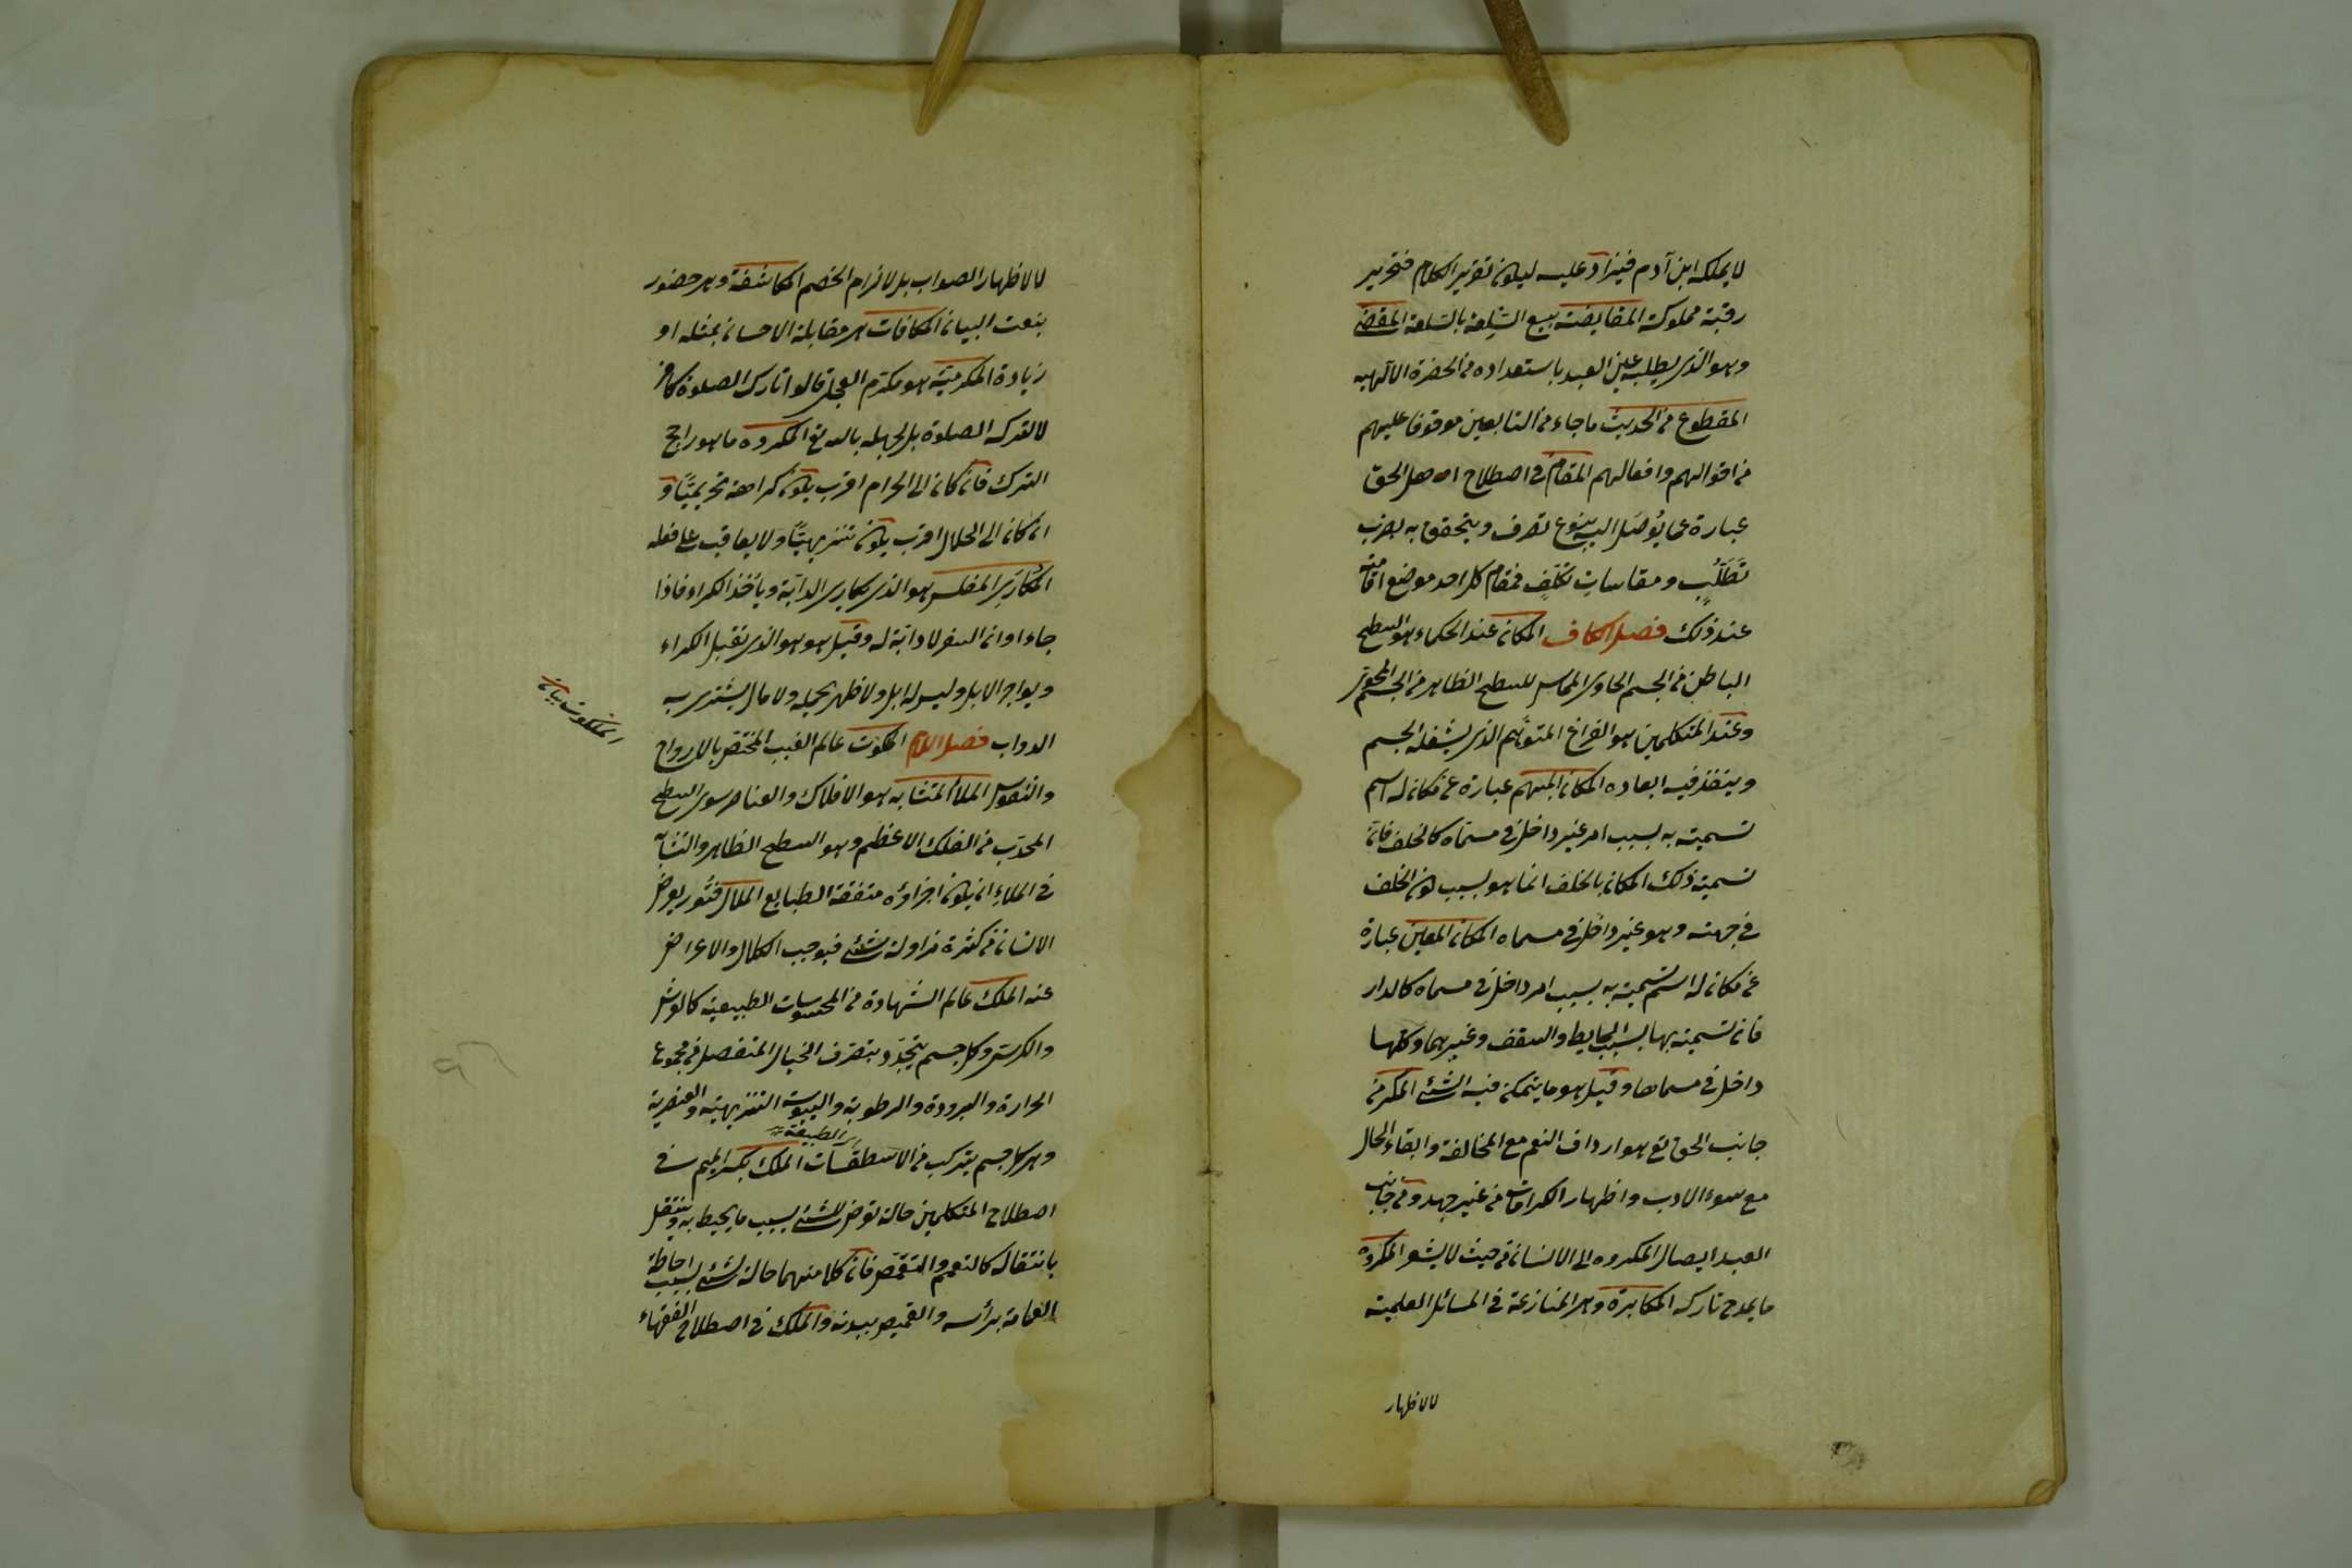 لا يملكه ابن آدم فيزاد عليه ليكون تقرير الكلام فتحرير
رقبة مملوكة المقايضة بيع السلعة بالسلعة المقضى
وهو الذى يطلب عين العبد باستعداده من الحضرة الالهيه
المقطوع من الحديث ما جاء من التابعين موقوفا عليهم
من اقوالهم وافعالهم المقام فى اصطلاح اهل الحق
عبارة عما يُوصَل اليه بنوع تصرف ويتحقق به بضرب
تَطَلُّبٍ ومقاسات تكلّفٍ فمقام كل احد موضع اقامته
عند ذلك فصل الكاف المكان عند الحكماء هو السطح
الباطن من الجسم الحاوى المماس للسطح الظاهر من الجسم المحوى
وعند المتكلمين هو الفراغ المتوهم الذى يشغله الجسم
وينفذ فيه ابعاده المكان المبهم عبارة عن مكان له اسم
تسميته به بسبب امر غير داخل فى مسمّاه كالخلف فانّ
تسمية ذلك المكان بالخلف انما هو بسبب كون الخلف
فى جهته وهو غير داخل فى مسماه المكان المعين عبارة
عن مكان له اسم تسميته به بسبب امر داخل فى مسماه كالدار
فان تسميته بها بسبب الحايط والسقف وغيرهما وكلها
داخل فى مسماها وقيل هو ما يتمكن فيه الشئ المكر من
جانب الحق تع هو ارداف النعم مع المخالفة وابقاء الحال
مع سوء الادب واظهار الكرامات من غير جهد ومن جانب
العبد ايصال المكروه الى الانسان من حيث لا يشعر المكروه
ما يمدح تاركه المكابرة وهى المنازعة فى المسائل العلمية
لا لاظهار
لا لاظهار الصواب بل لالزام الخصم المكاشفة وهى حضور
بنعت البيان المكافات هى مقابلة الاحسان بمثله او
زيادة المكرميّة هو مكرم العجلى قالوا تارك الصلوة كافر
لا لترك الصلوة بل لجهله بالله تع المكروه ما هو راجح
الترك فان كان الى الحرام اقرب يكون كراهته تحريميّا و
ان كان الى الحلال اقرب يكون تنزيهيّا ولا يعاقب على فعله
المكارى المفلس هو الذى يكارى الدابة ويأخذ الكراء فاذا
جاء اوان السفر لا دابّة له وقيل هو هو الذى تقبل الكراء
ويواجر الابل وليس له ابل ولا ظهر يحمله ولا مال يشترى به
الدواب فصل اللام الملكوت عالم الغيب المختص بالارواح
والنفوس الملأ المتشابه هو الافلاك والعناصر سوى السطح
المحدّب من الفلك الاعظم وهو السطح الظاهر والتشابه
فى الملاء ان يكون اجزاؤه متفقة الطبايع الملال فتُور يعرض
الانسان من كثرة مزاولة شئ فيوجب الكلال والاعراض
عنه الملك عالم الشهادة من المحسوسات الطبيعية كالعرش
والكرسى وكل جسم يتجدّد بتصرف الخيال المنفصل فى مجموع
الحرارة والبرودة والرطوبة واليبوسة التنزيهية والعنصرية
الطبيعة
وهى كل جسم يتركب من الاسطقسات الملك بكسر الميم فى
اصطلاح المتكلمين حالة تعرض للشئ بسبب ما يحيط به وينتقل
بانتقاله كالتعمم والتقمّص فان كلا منهما حالة لشئ بسبب احاطة
العمامة برأسه والقميص ببدنه والملك فى اصطلاح الفقهاء
الملكوت